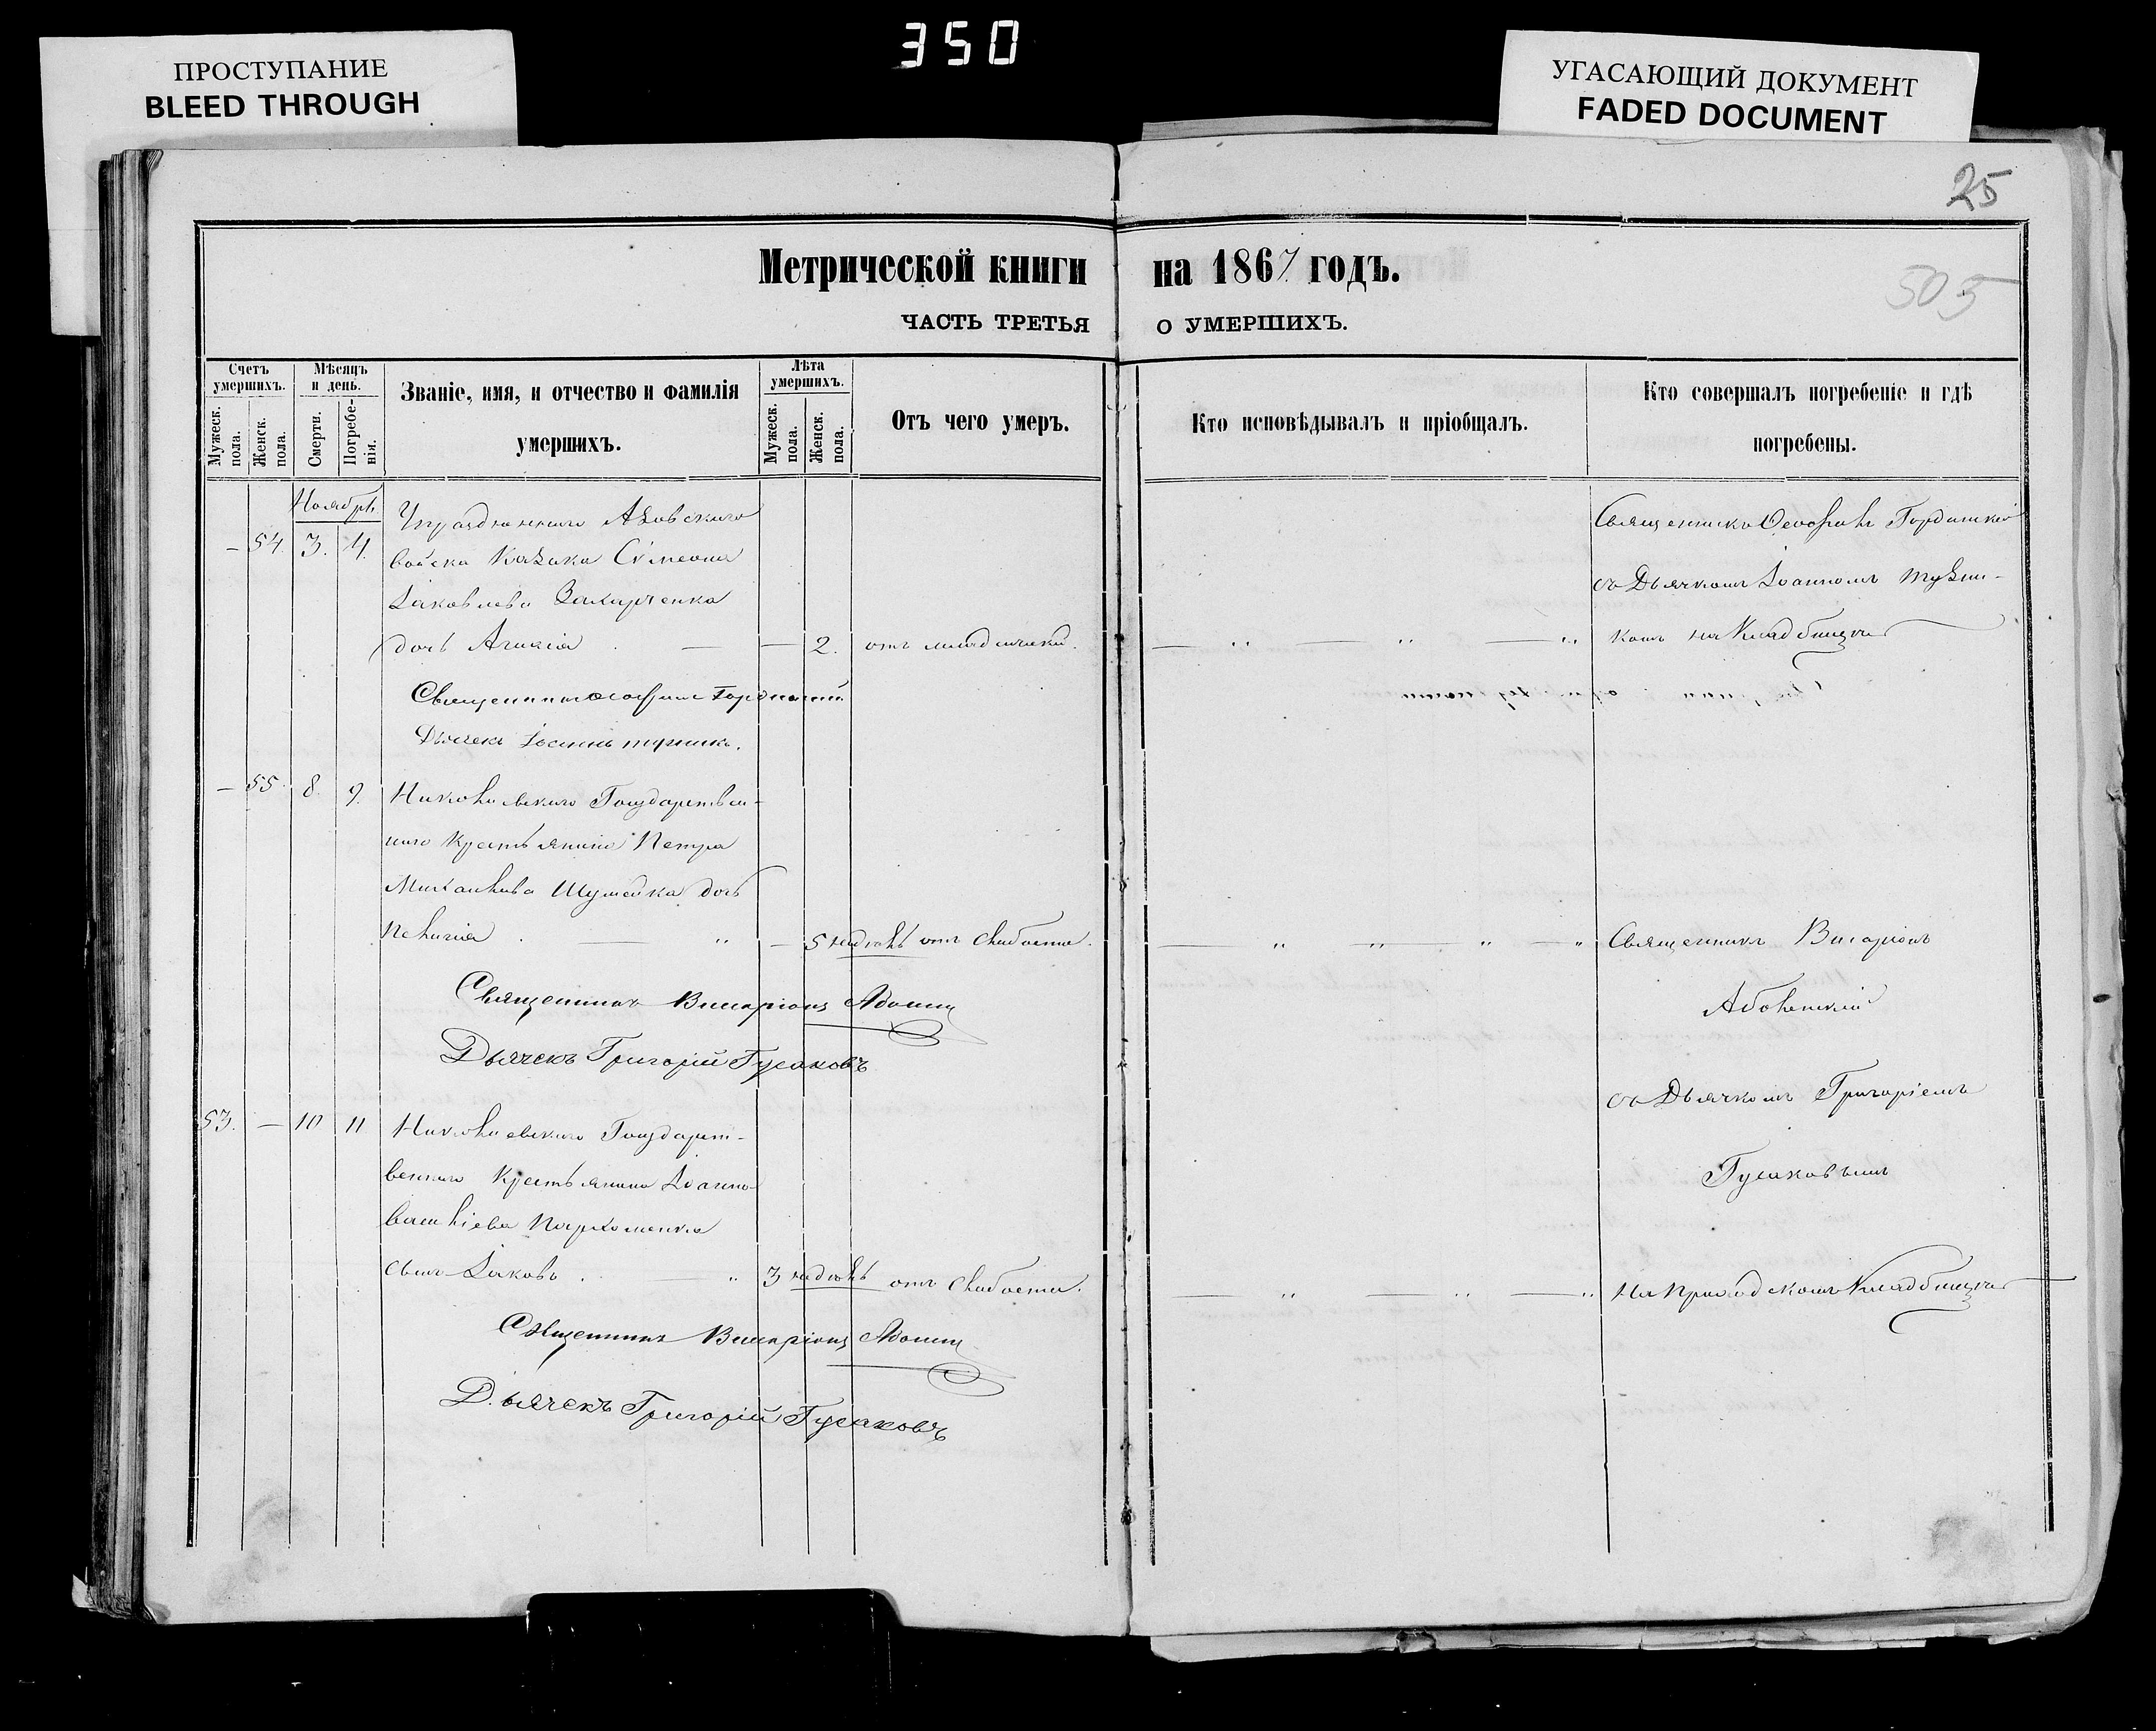 350
ПРОСТУПАНИЕ
BLEED THROUGH
УГАСАЮЩИЙ ДОКУМЕНТ
FADED DOCUMENT
25
505
Метрической книги на 1867 годъ.
ЧАСТЬ ТРЕТЬЯ О УМЕРШИХЪ.
Счетъ умершихъ.
Мужеск. пола.
Женск. пола.
Мѣсяцъ и день.
Смерти.
Погребенія.
Званіе, имя, и отчество и фамилія
умершихъ.
Лѣта умершихъ.
Мужеск. пола.
Женск. пола.
Отъ чего умеръ.
Кто исповѣдывалъ и пріобщалъ.
Кто совершалъ погребеніе и гдѣ
погребены.
Ноябрь
— 54. 3. 4.
Упраздненнаго Азовскаго
войска Казака Симеона
Іаковлева Захарченка
дочь — — 2. отъ
Священникъ
съ Дьячкомъ Іоанномъ
на Кладбищѣ
Священникъ
Дьячекъ Іоаннъ
— 55. 8. 9.
Николаевскаго Государствен-
наго Крестьянина Петра
Михаилова дочь
Пелагія — 5 недѣль отъ слабости.
Священникъ Виссаріонъ
Дьячекъ Григорій Гусаковъ
Священникъ Висаріонъ
съ Дьячкомъ Григоріемъ
Гусаковымъ
53. — 10 11
Николаевскаго Государст-
веннаго Крестьянина Іоанна
Пархоменка
сынъ Іаковъ 3 недѣль отъ слабости.
На Приходскомъ Кладбищѣ
Священникъ Виссаріонъ
Дьячекъ Григорій Гусаковъ